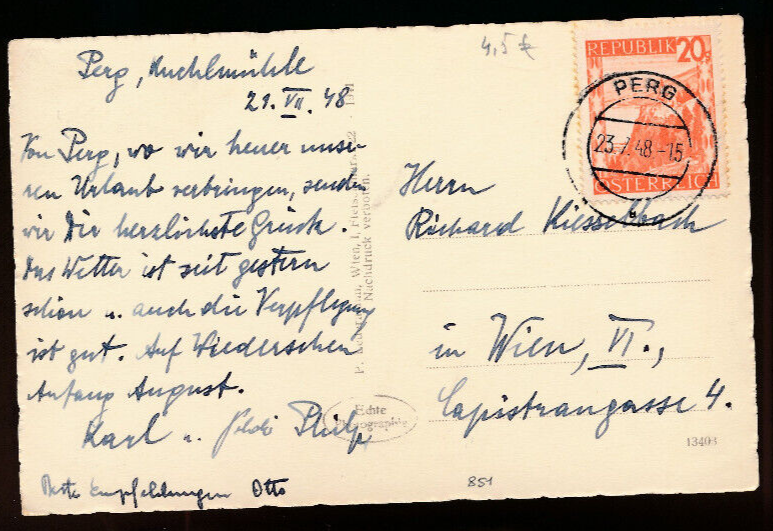 4,5 €
Perg, Kuchlmühle
21. VII. 48
Von Perg, wo wir heuer unse-
ren Urlaub verbringen, senden
wir Dir herzlichste Grüsse.
Das Wetter ist seit gestern
schön u. auch die Verpflegung
ist gut. Auf Wiedersehen
Anfang August.
Karl u. Poldi
Beste Empfehlungen Otto
Wien, I.
Nachdruck verboten.
Echte
Photographie
REPUBLIK 20g
ÖSTERREICH
PERG
23.7.48.-15
Herrn
Richard Kiesselbach
in Wien, VI.,
Capistrangasse 4.
13403
851